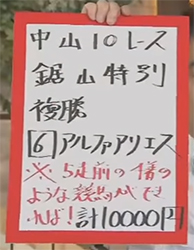 中山10レース
鋸山特別
複勝
[6]アルファアリエス
※5走前の様の
ような競馬ができ
れば!計10000円